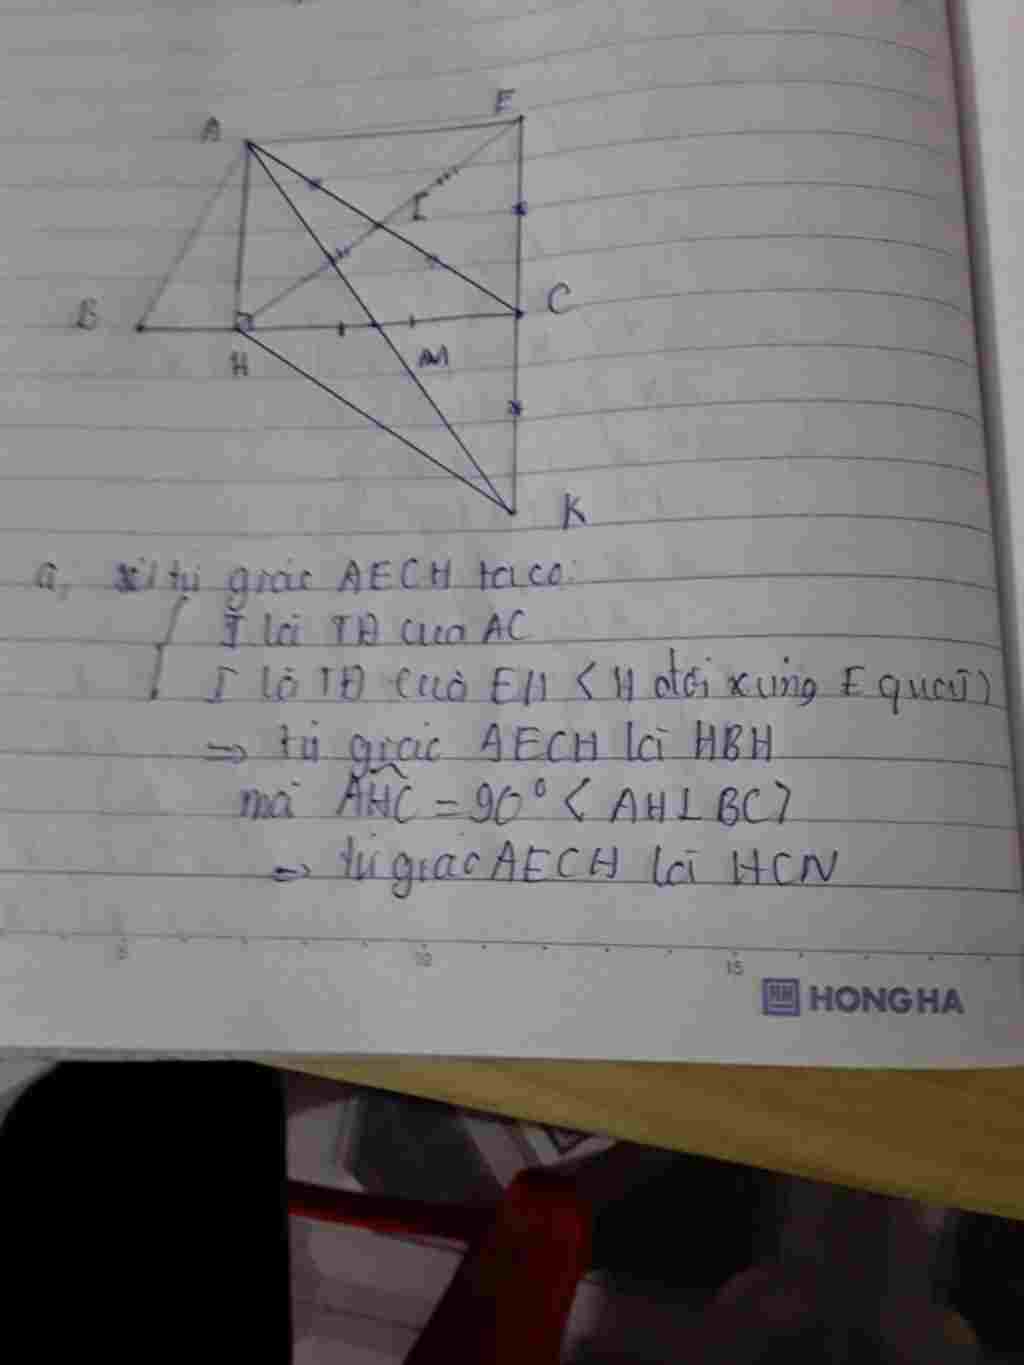 A
E
I
B
C
H
M
K
a, xét tứ giác AECH ta có:
I là TĐ của AC
I là TĐ của EH < H đối xứng E qua I)
=> tứ giác AECH là HBH
mà AHC = 90° < AH⊥BC>
=> tứ giác AECH là HCN
5 10 15
HH HONG HA